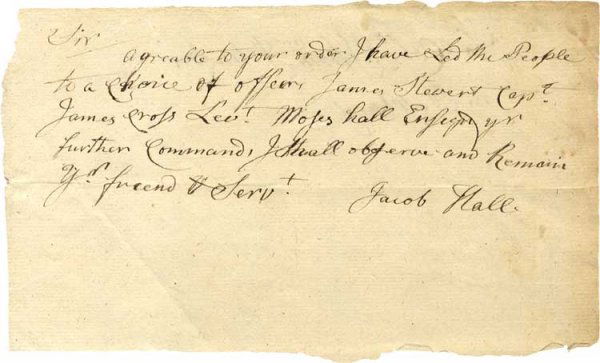 Sir
agreable to your order I have Led the People
to a Choice of officers James Stevert Capt.
James Cross Leut. Moses hall Ensign yr
further Commands I shall observe and Remain
Yr. friend & Servt.
Jacob Hall.